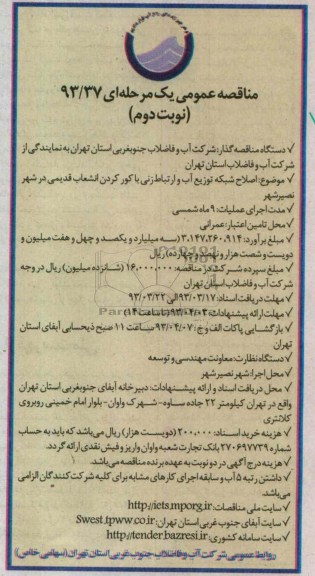 مناقصه عمومی یک مرحله‌ای ۹۳/۳۷
(نوبت دوم)
✓ دستگاه مناقصه گذار: شرکت آب و فاضلاب جنوبغربی استان تهران به نمایندگی از
شرکت آب و فاضلاب استان تهران
✓ موضوع: اصلاح شبکه توزیع آب و ارتباط زنی با کور کردن انشعاب قدیمی در شهر
نصیرشهر
✓ مدت اجرای عملیات: ۹ ماه شمسی
✓ محل تامین اعتبار: عمرانی
✓ مبلغ برآورد: ۳،۱۴۷،۲۶۰،۹۱۴ (سه میلیارد و یکصد و چهل و هفت میلیون و
دویست و شصت هزار و نهصد و چهارده) ریال
✓ مبلغ سپرده شرکت در مناقصه: ۱۶،۰۰۰،۰۰۰ (شانزده میلیون) ریال در وجه
شرکت آب و فاضلاب استان تهران
✓ مهلت دریافت اسناد: ۹۳/۰۳/۱۷ الی ۹۳/۰۳/۲۲
✓ مهلت ارائه پیشنهادات: ۹۳/۰۴/۰۳ ساعت ۱۴
✓ بازگشایی پاکات الف و ج: ۹۳/۰۴/۰۷ ساعت ۱۱ صبح ذیحسابی آبفای استان
تهران
✓ دستگاه نظارت: معاونت مهندسی و توسعه
✓ محل اجرا: شهر نصیرشهر
✓ محل دریافت اسناد و ارائه پیشنهادات: دبیرخانه آبفای جنوبغربی استان تهران
واقع در تهران کیلومتر ۲۲ جاده ساوه-شهرک واوان-بلوار امام خمینی روبروی
کلانتری
✓ هزینه خرید اسناد: ۲۰۰،۰۰۰ (دویست هزار) ریال می‌باشد که باید به حساب
شماره ۲۷۰۶۹۷۷۳۹ بانک تجارت شعبه واوان واریز و فیش نقدی ارائه گردد.
✓ هزینه درج آگهی در دو نوبت به عهده برنده مناقصه می‌باشد.
✓ داشتن رتبه ۵ آب و سابقه اجرای کارهای مشابه برای کلیه شرکت کنندگان الزامی
می‌باشد.
✓ سایت ملی مناقصات: http://iets.mporg.ir
✓ سایت آبفای جنوب غربی استان تهران: Swest.tpww.co.ir
✓ سایت سامانه کشوری: http://tender.bazresi.ir
روابط عمومی شرکت آب و فاضلاب جنوب غربی استان تهران (سهامی خاص)